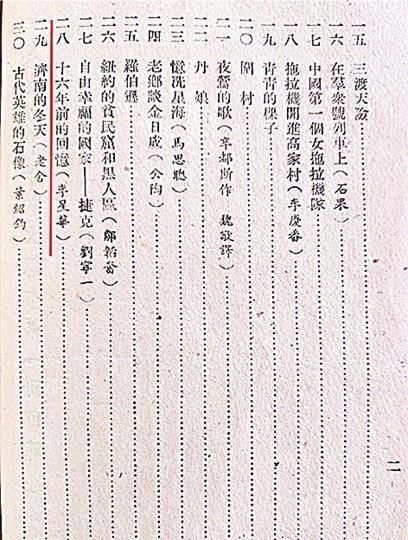 一五 三渡天險
一六 在羣衆號列車上(石果)
一七 中國第一個女拖拉機隊
一八 拖拉機開進高家村(李慶番)
一九 青青的棵子
二〇 圍村
二一 夜鶯的歌(辛都斯作 魏敬譯)
二二 丹娘
二三 憶洗星海(馬思聰)
二四 老鄉談金日成(公陶)
二五 羅伯遜
二六 紐約的貧民窟和黑人區(鄒韜奮)
二七 自由幸福的國家——捷克(劉寧一)
二八 十六年前的回憶(李星華)
二九 濟南的冬天(老舍)
三〇 古代英雄的石像(葉紹鈞)
二